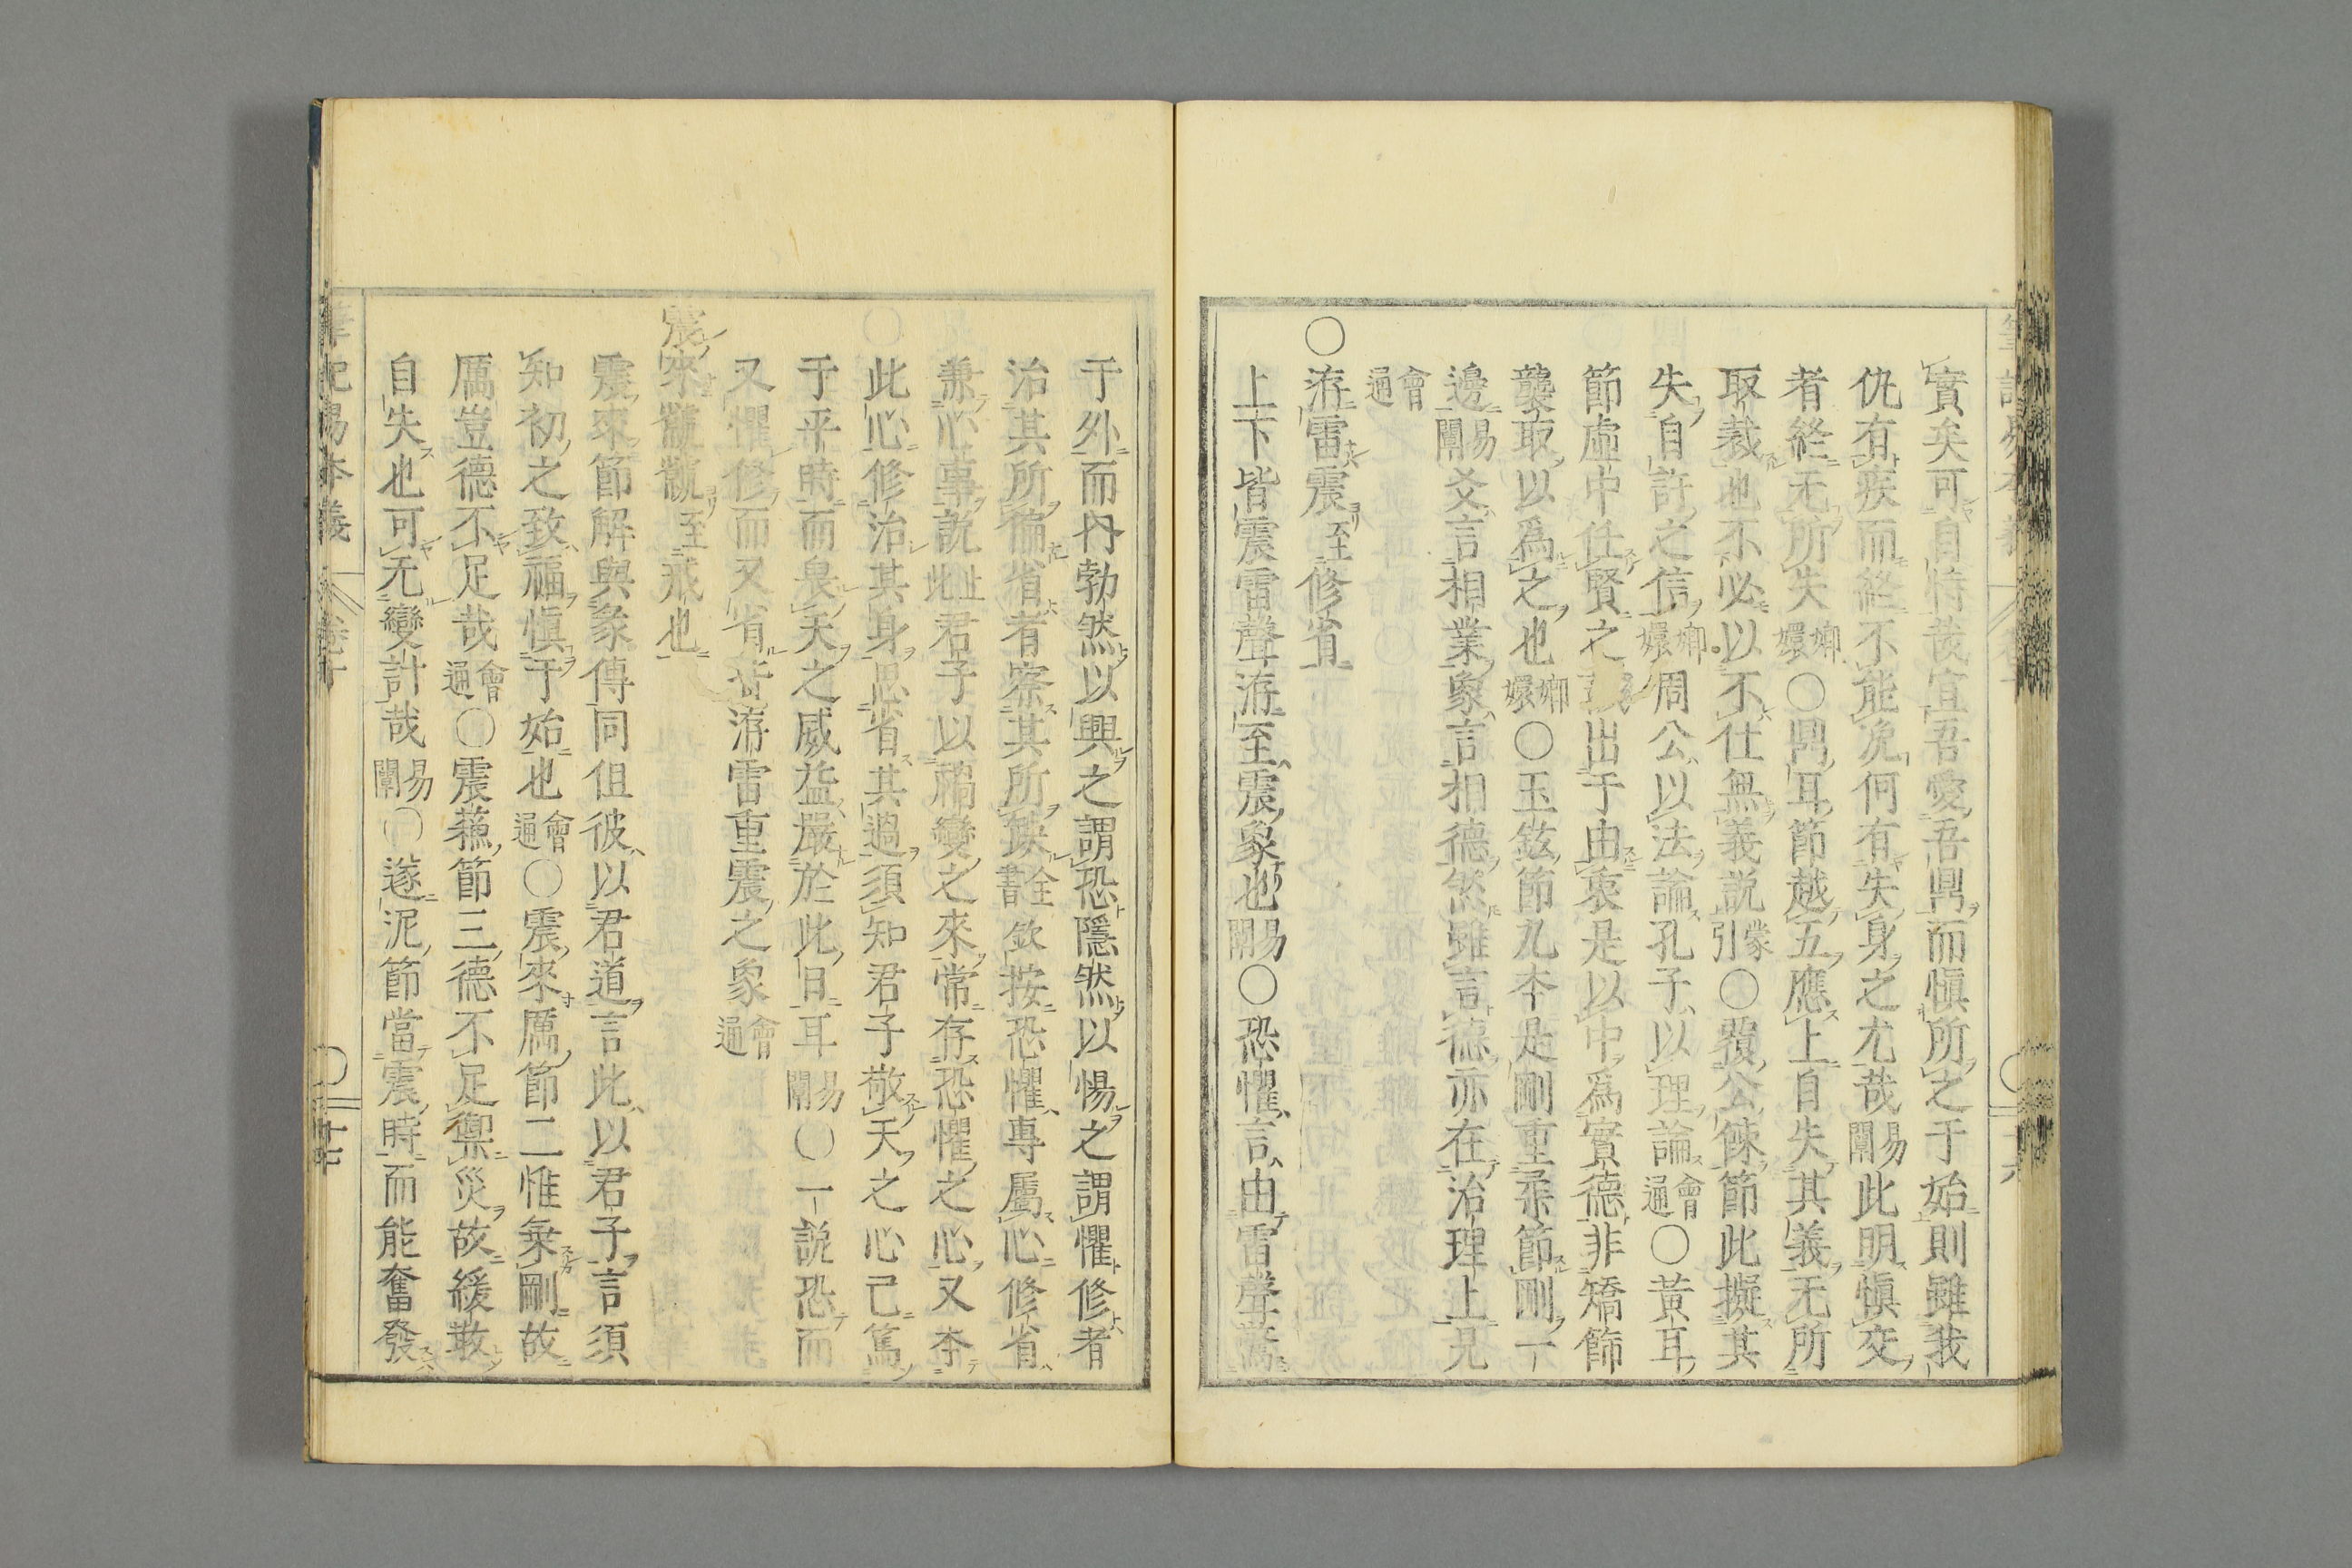 實矣可自恃哉宜吾愛吾鼎而愼所之于始則雖我
仇有疾而終不能浼何有失身之尤哉易闡此明愼交
者終无所失嫏嬛○鼎耳節越五應上自失其義无所
取裁也不必以不仕無義説蒙引○覆公餗節此擬其
失自許之信嫏嬛周公以法論孔子以理論會通○黃耳
節虛中任賢之出于由衷是以中爲實德非矯飾
襲取以爲之也嫏嬛○玉鉉節凡本是剛重柔節剛一
邊易闡爻言相業象言相德然雖言德亦在治理上見
會通
○洊雷震至修省
上下皆震雷聲洊至震象也易闡○恐懼言由雷聲驚
于外而內勃然以興之謂恐隱然以惕之謂懼修者
治其所偏省者察其所缺全書欽按恐懼專屬心修省
兼心事說此址君子以禍變之來常存恐懼之心又本
○此心修治其身思省其過須知君子敬天之心已篤
于平時而畏天之威益嚴於此日耳易闡○一說恐而
又懼修而又省皆洊雷重震之象會通
震來虩虩至戒也
震來節解與彖傳同但彼以君道言此以君子言須
知初之致福愼于始也會通○震來厲節二惟乗剛故
厲豈德不足哉會通○震蘇節三德不足禦災故緩散
自失也可无變計哉易闡○遂泥節當震時而能奮發
筆記易本義
卷十
十七